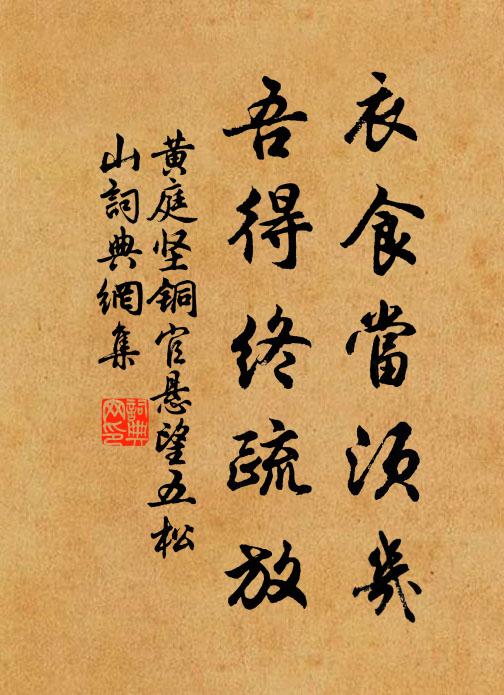 衣食當須幾
吾得終疏放
黄庭坚銅官悬望五松
山詞典網集
詞典
网印